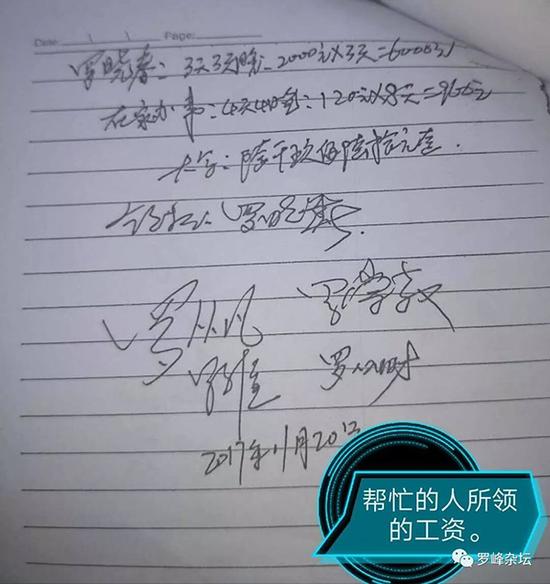 Date: Page:
罗晓春:3天3晚:2000元×3天=6000元
在家办事:4天4晚:120元×8天=960元
大字:陆千玖佰陆拾元整.
罗晓春
罗从凡 罗学敏
罗
2017年11月20日
帮忙的人所领
的工资。
罗峰杂坛